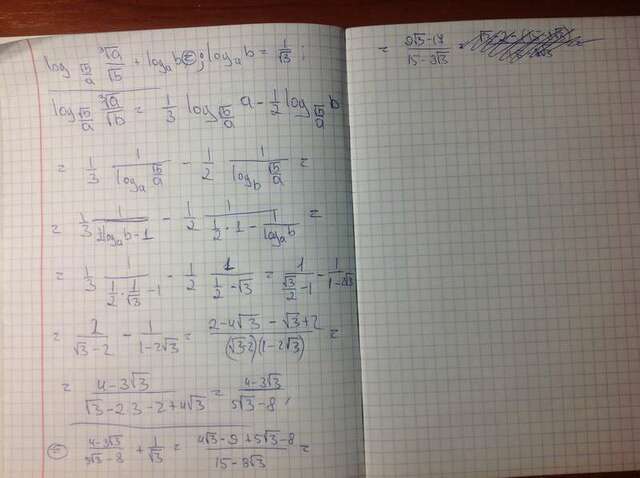 log_{√b/a} ∛a/√b + log_a b = ; log_a b = 1/√3 ;
log_{√b/a} ∛a/√b = 1/3 log_{√b/a} a - 1/2 log_{√b/a} b
= 1/3 1/(log_a √b/a) - 1/2 1/(log_b √b/a) =
= 1/3 1/(½log_a b - 1) - 1/2 1/(1/2 · 1 - 1/(log_a b)) =
= 1/3 1/(1/2 · 1/√3 - 1) - 1/2 1/(1/2 - √3) = 1/(√3/2 - 1) - 1/(1 - 2√3)
= 2/(√3 - 2) - 1/(1 - 2√3) = (2 - 4√3 - √3 + 2)/((√3 - 2)(1 - 2√3)) =
= (4 - 3√3)/(√3 - 2·3 - 2 + 4√3) = (4 - 3√3)/(5√3 - 8) ;
= (4 - 3√3)/(5√3 - 8) + 1/√3 = (4√3 - 9 + 5√3 - 8)/(15 - 8√3) =
= (9√3 - 17)/(15 - 8√3) =